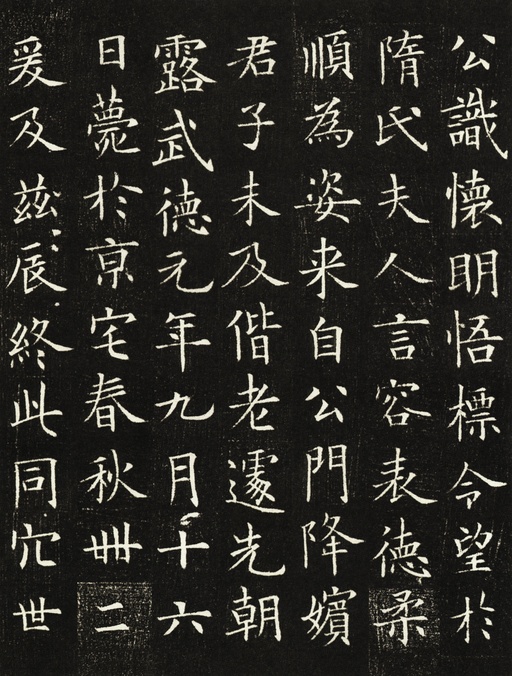 公識懷明悟標令望於
隋氏夫人言容表德柔
順為姿来自公門降嬪
君子未及偕老遽先朝
露武德元年九月十六
日薨於京宅春秋卌二
爰及兹辰終此同穴世